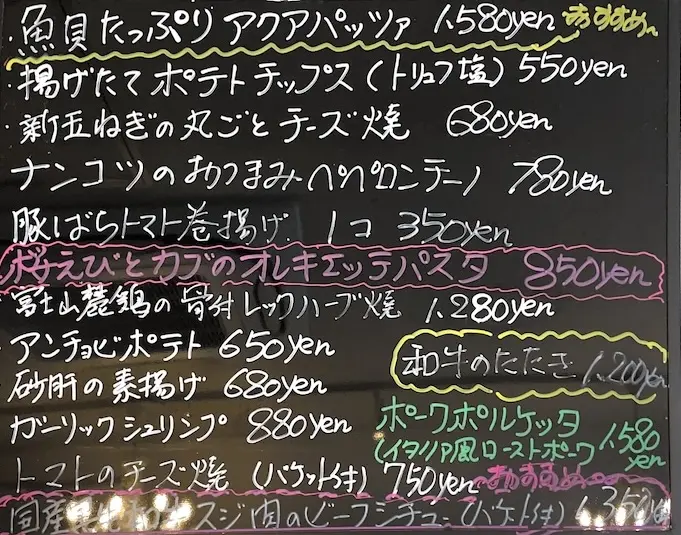 ・魚貝たっぷりアクアパッツァ 1,580yen おすすめ〜
・揚げたてポテトチップス(トリュフ塩) 550yen
・新玉ねぎの丸ごとチーズ焼 680yen
ナンコツのおつまみペペロンチーノ 780yen
豚ばらトマト巻揚げ 1コ 350yen
桜えびとカブのオレキエッテパスタ 850yen
富士山麓鶏の骨付レッグハーブ焼 1,280yen
・アンチョビポテト 650yen
和牛のたたき 1,200yen
砂肝の素揚げ 680yen
ガーリックシュリンプ 880yen
ポークポルケッタ
(イタリア風ローストポーク 1,580yen
トマトのチーズ焼(バケット付) 750yen おすすめ〜
国産 スジ肉のビーフシチュー(バケット付) 1,350yen